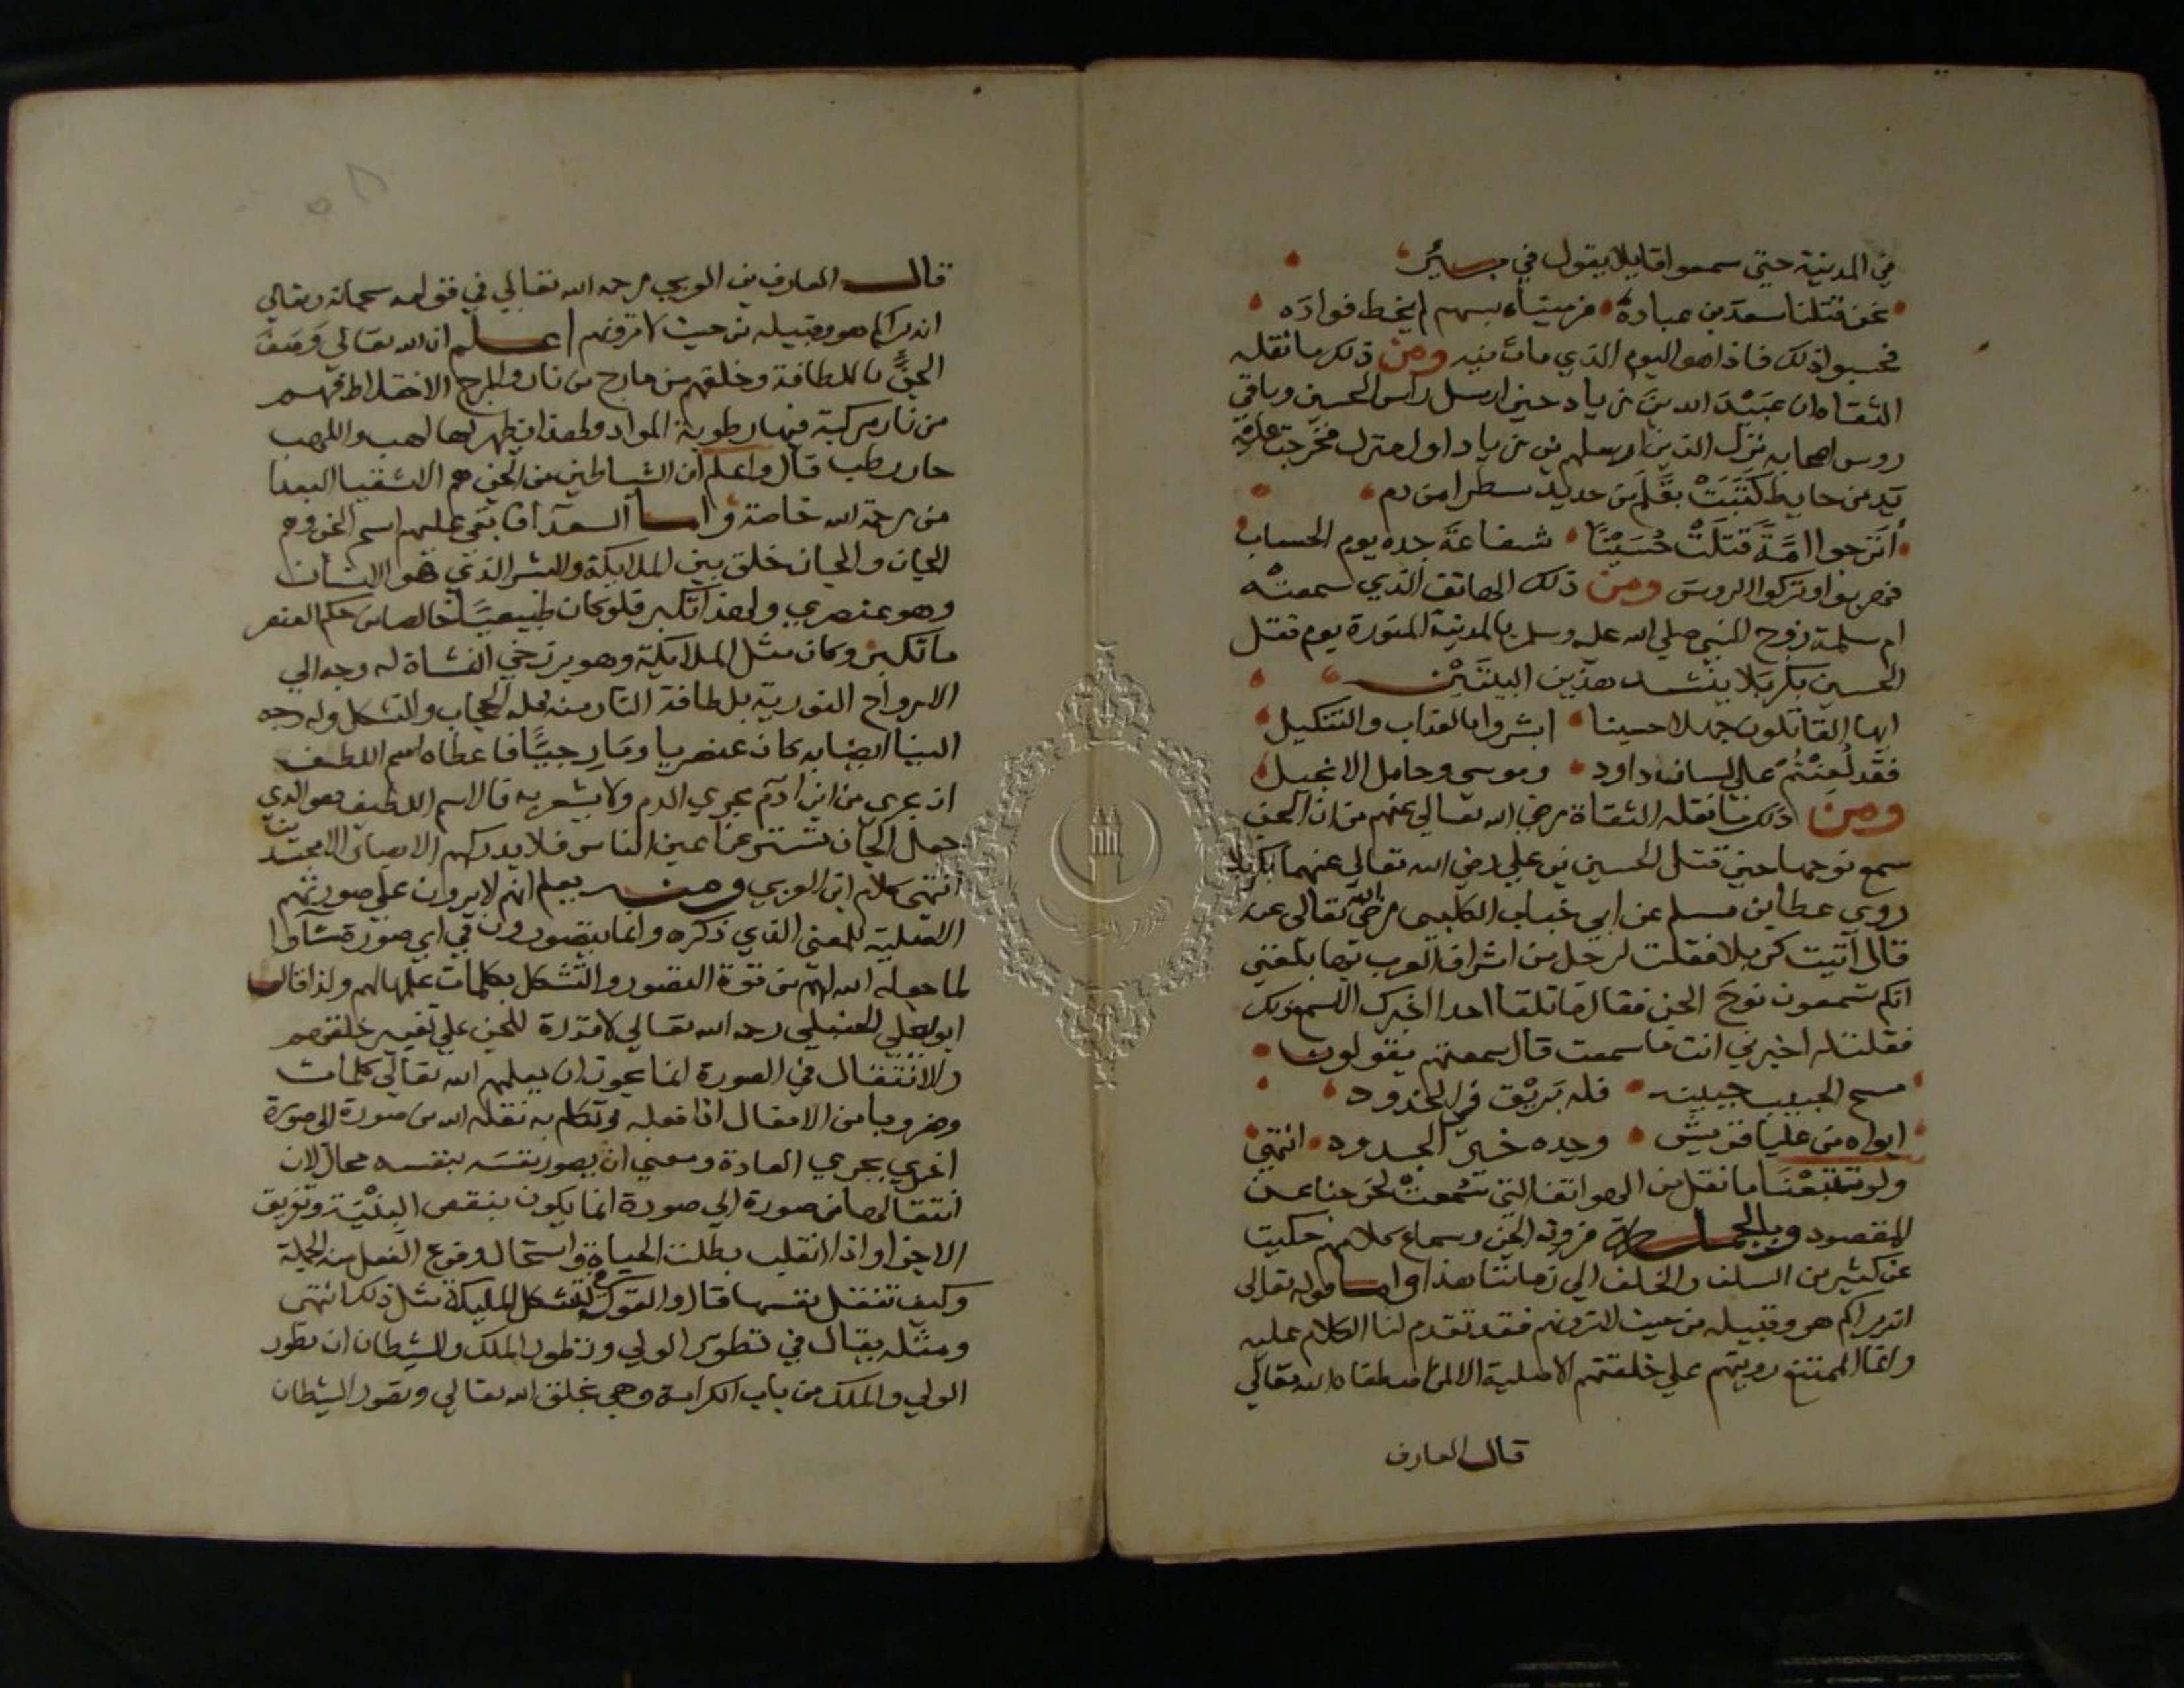 في المدينة حتى سمعوا قايلا يقول في بير
نحن قتلنا سعد بن عبادة فرميناه بسهم لم يخط فوادَه
فحسبوا ذلك فاذا هو اليوم الذي مات فيه ومن ذلك ما نقله
الثقاه ان عبَيْد الله بن زياد حين ارسل راس الحسين وباقي
روس اصحابه نزل الذين ارسلهم بن زياد اول منزل فخرجت عليهم
يَد من حايط كتبَتْ بقَلَم من حديد سطرا من دم
أترجوا امَّةً قَتَلَتْ حُسَيْنًا شفاعةَ جده يوم الحساب
فهربوا وتركوا الروسَ ومن ذلك الهاتف الذي سمعتْه
ام سلمة زوج النبي صلى الله عليه وسلم بالمدينة المنورة يوم قتل
الحسين بكربلا ينشد هذين البيتَيْن
ايها القاتلون جهلا حسينا ابشروا بالعذاب والتنكيل
فقَد لُعِنْتُمْ على لسان داود وموسى وحامل الانجيل
ومن ذلك ما نقله الثقاة رضي الله تعالى عنهم من ان الجن
سمع نوحها حين قتل الحسين بن علي رضي الله تعالى عنهما بكربلا
روى عطا بن مسلم عن ابي خباب الكلبي رضي الله تعالى عنه
قال اتيت كربلا فقلت لرجل من اشراف العرب بها بلغني
انكم تسمعون نوح الجن فقال ما تلقا احدا الا خبرك انه سمع ذلك
فقلت له اخبرني انت ما سمعت قال سمعتهم يقولون
مسح الحبيب جبينه فله بَرِيْق في الخدود
ابواه من عليا قريش وجده خير الجدود انتهى
ولو تتبعْنَا ما نقل من الهواتف التي سُمِعَتْ لخرجنا عن
المقصود وبالجملة فروية الجن وسماع كلامهم حكيت
عن كثير من السلف والخلف الى زماننا هذا واما قوله تعالى
انه يراكم هو وقبيله من حيث لا ترونهم فقد تقدم لنا الكلام عليه
وانما الممتنع رويتهم على خلقتهم الاصلية الا لمن اصطفاه الله تعالى
قال العارف
قال العارف بن العربي رحمه الله تعالى في قوله سبحانه وتعالى
انه يراكم هو وقبيله من حيث لا ترونهم اعلم ان الله تعالى وَصَفَ
الجنَّ باللطافة وخلقهم من مارج من نار والمرج الاختلاط فهم
من نار مركبة فيها رطوبة المواد ولهذا يظهر لها لهب واللهب
حار رطب قال واعلم ان الشياطين من الجن هم الاشقيا البعدا
من رحمة الله خاصة واما السعدآ فابقى عليهم اسم الجن وهم
الجان والجان خلق بين الملايكة والبشر الذي هو الانسان
وهو عنصري ولهذا تكبر فلو كان طبيعيًا خالصا من حكم العنصر
ما تكبر وكان مثل الملايكة وهو برزخي النشاة له وجه الى
الارواح النورية بلطافة النار منه فله الحجاب والتشكل وله وجه
الينا ايضا به كان عنصريا ومارجيًّا فاعطاه اسم اللطيف
ان يجري من ابن ادم مجري الدم ولا يشعر به قال اسم اللطيف هو الذي
جعل الجان تستتر عن اعين الناس فلا يدركهم الابصار الا متجسدين
انتهى كلام ابن العربي ومنه يعلم انهم لا يرون على صورتهم
الاصلية للمعنى الذي ذكره وانما يتصورون في اي صورة شآوا
لما جعل الله لهم من قوة التصور والتشكل بكلمات علمها لهم ولذا قال
ابو يعلي الحنبلي رحمه الله تعالى لا قدرة للجن على تغيير خلقهم
والانتقال في الصورة انما يجوز ان يعلمهم الله تعالى كلمات
وضروبا من الافعال اذا فعله وتكلم به نقله الله من صورة الى صورة
اخرى بجري العادة ومعنى ان يصور نفسَه بنفسه محال لان
انتقالها من صورة الى صورة انما يكون بنقص البِنْيَة وتفريق
الاجزا واذا انقلب بطلت الحياة واستحال وقوع الفعل من الجملة
وكيف تنقل نفسها قال والقول في تشكل المليكة مثل ذلك انتهى
ومثله يقال في تطور الولي وتطور الملك والشيطان ان تطور
الولي والملك من باب الكرامة وهي بخلق الله تعالى وتصور الشيطان